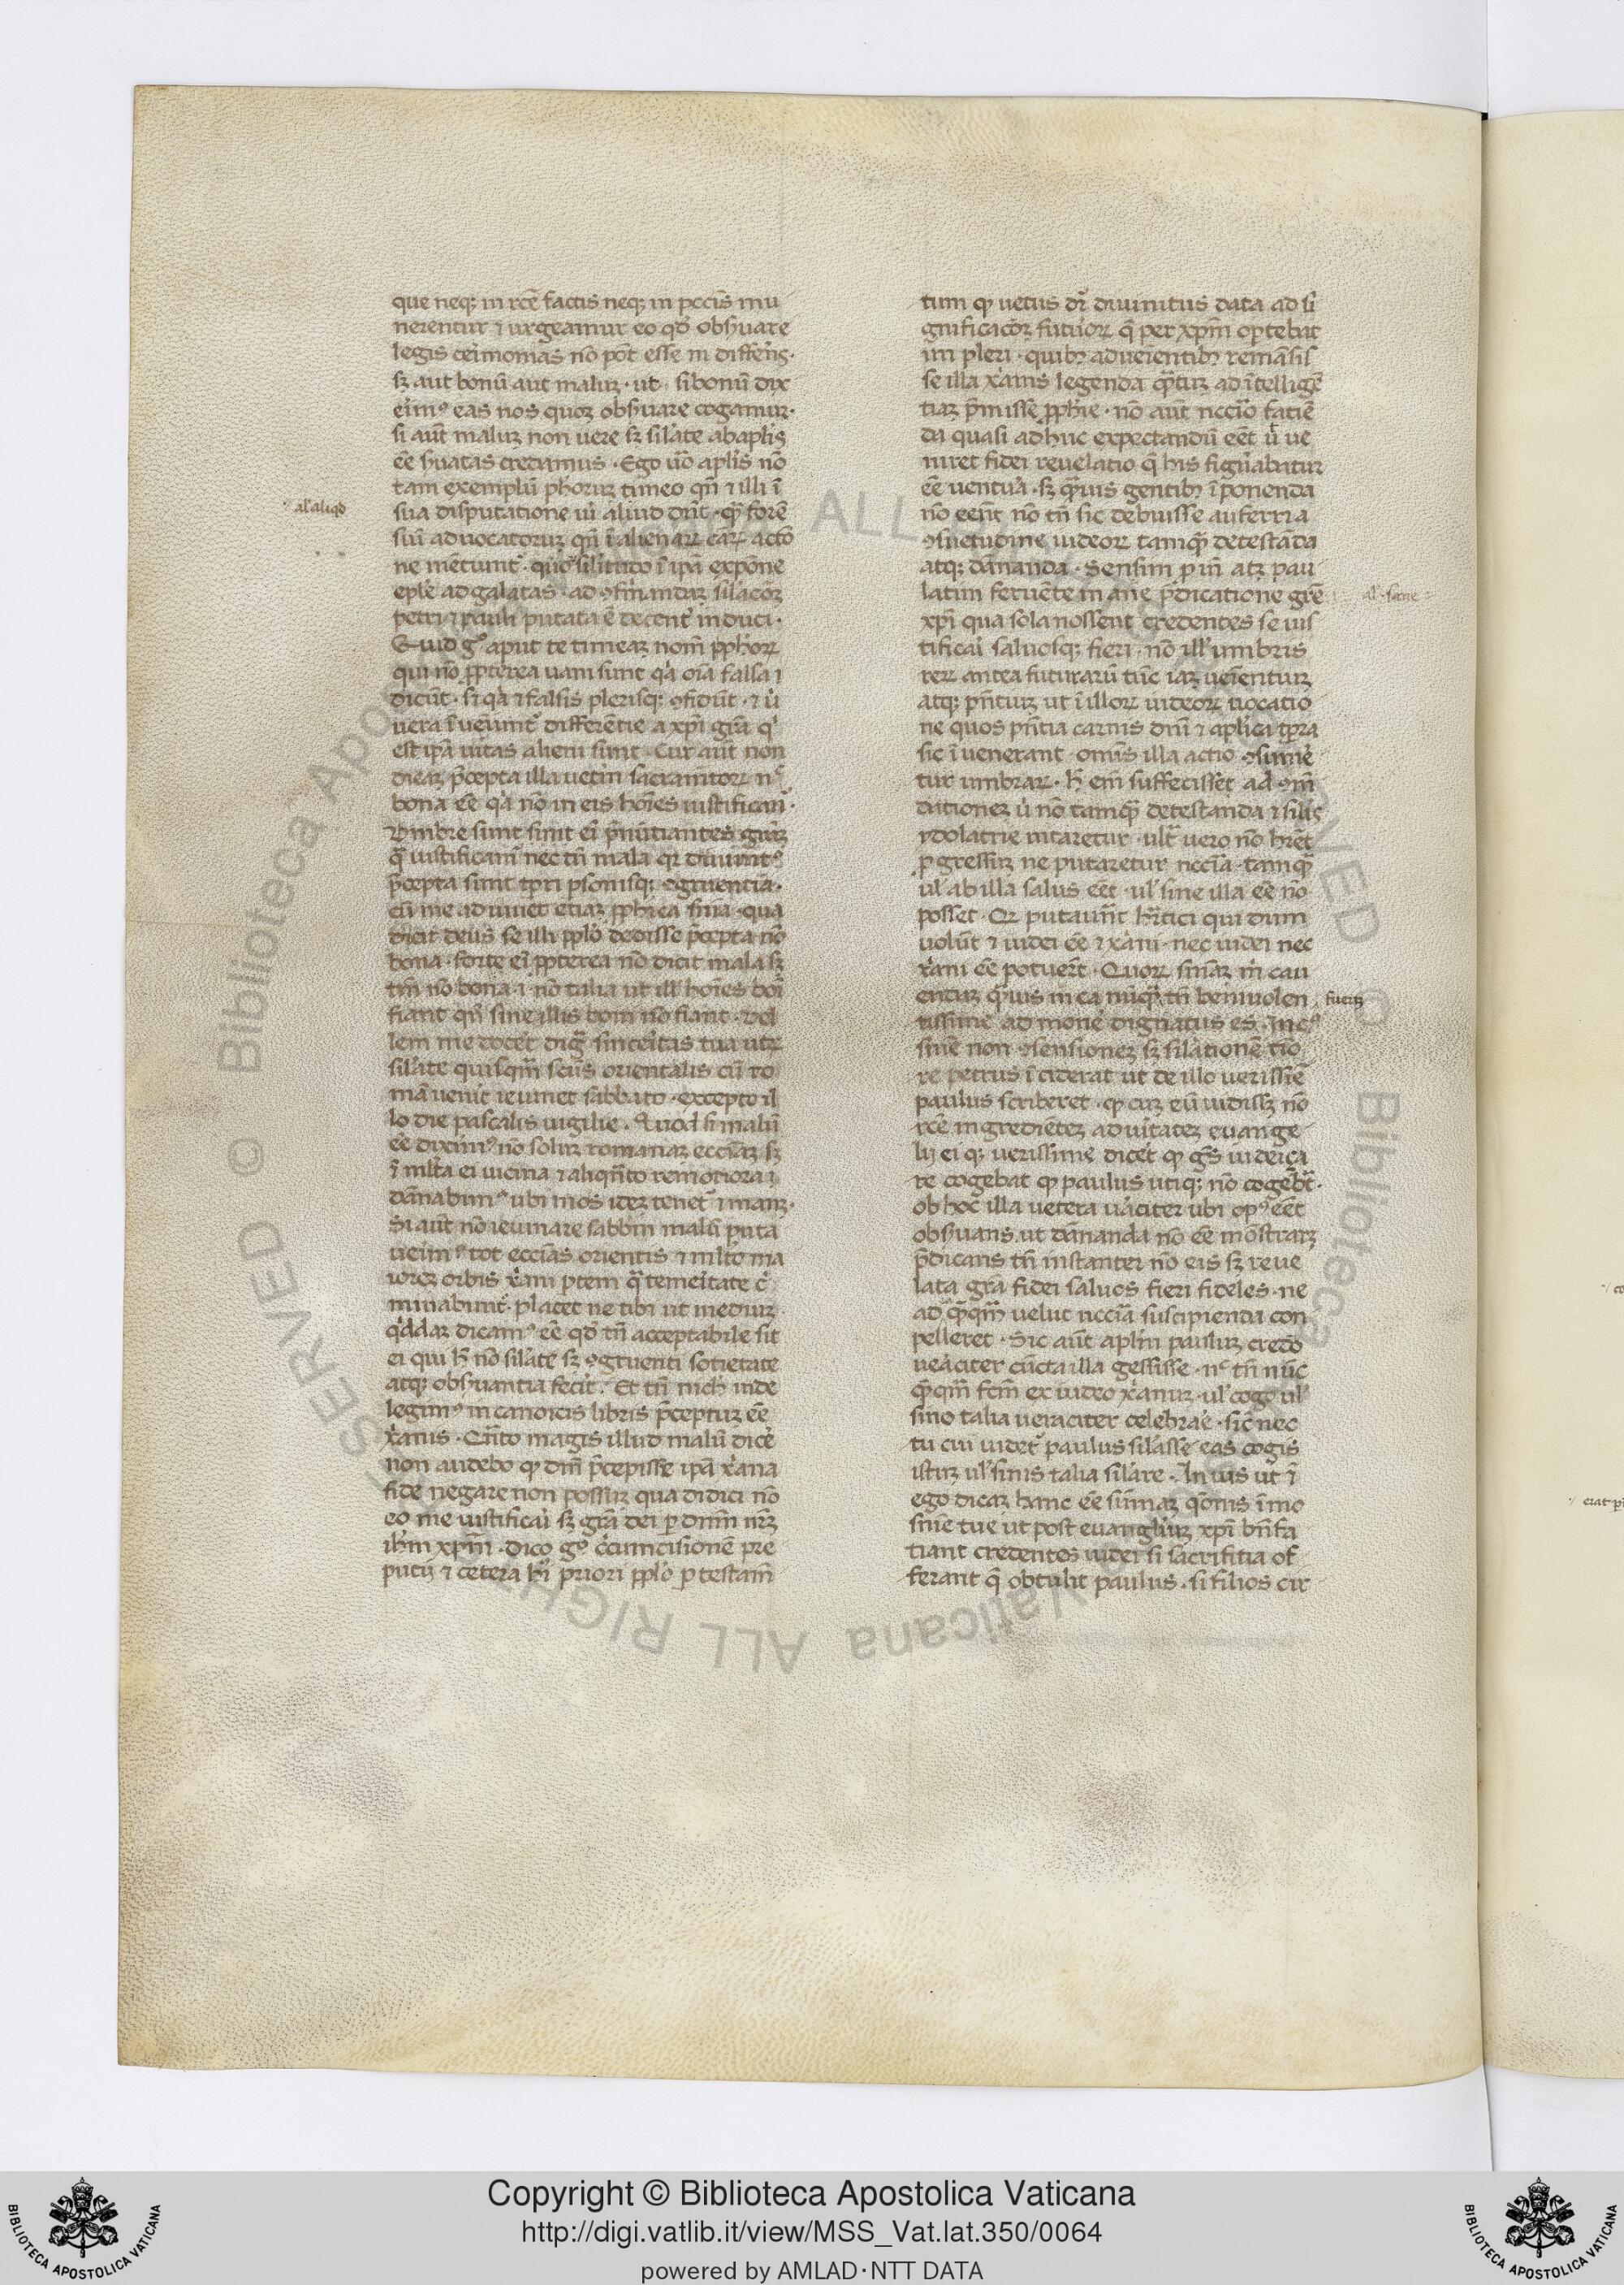 que neq; in rc̄e factis neq; in pcc̄is mu
nerentur ⁊ urgeamur eo qd̓ obẜuare
legis cerimonias nō pōt esse in diffēns·
sꝫ aut bonū aut maluꝫ · ut si bonū dix
eim᾿ eas nos quoqꝫ obẜuare cogamur·
si aūt maluꝫ non uere sꝫ sil̓ate ab apl̓is
ēe ẜuatas credamus · Ego uō apl̓is nō
tam exemplū phoruꝫ timeo qn̄ ⁊ illi ī
al̓ aliqd̓
sua disputatione uī aliud dn̄t · qꝫ forē
siū aduocatoruꝫ qn̄ ī alienaꝝ cāꝝ actō
ne mētunt᾿ · quoꝝ sil̓itudo ī ipā expōne
ep̄le ad galatas · ad ꝯfirmandaꝫ sil̓acōꝫ
petri ⁊ pauli putata ē decent᾿ induci ·
Quid g᾿ aput te timeaꝫ nom̄ pp̄hoꝝ
qui nō ꝓpterea uani sunt q̓a oīa falsa
dicūt · sꝫ q̓a ⁊ falsis plerisq; ꝯfidūt · ⁊ ū
uera īueiunt᾿ differētie a xp̄i grā q̓
est ipā ūitas alieni sunt · Cur aūt non
dicaꝫ p̄cepta illa uetiū sacramtoꝝ n᾿
bona ēe q̓a nō in eis hōies iustificant᾿·
umbre sunt sunt ei᾿ p̄nūtiantes grāꝫ
qͣ iustificam᾿ nec tn̄ mala qꝛ diuinit᾿
p̄cepta sunt tp̄ri ꝑsonisq; ꝯgruentia·
cū me adiuuet etiaꝫ pp̄hica sn̄ia · qua
dicit deus se illi pplo dedisse p̄cepta nō
bona · forte ei᾿ ꝓpterea nō dicit mala sꝫ
tm̄ nō bona ·i· nō talia ut ill᾿ hōies boi
fiant qn̄ sine illis boni nō fiant · Vel
lem me docēt dig᾿ sinceritas tua utꝝ
sil̓ate quisqm̄ scūs orientalis cū ro
mā uenit ieiunet sabbato · excepto il
lo die pascalis uigilie · Quod si malū
ēe dixim᾿ nō soluꝫ romanaꝫ ecciaꝫ sꝫ
⁊ ml̓ta ei uicina ⁊ aliqn̄to remotiora
dānabim᾿ ubi mos ideꝫ tenet᾿ ⁊ manꝫ·
Si aūt nō ieiunare sabbm̄ malū puta
ueim᾿ tot eccias orientis ⁊ ml̓to ma
iorēꝫ orbis x̓ani ꝑtem qͣ temeitate c᾿
minabunt᾿· placet ne tibi ut mediuꝫ
q̓ddaꝫ dicam᾿ ēe qd̓ tn̄ acceptabile sit
ei qui h̄ nō sil̓ate sꝫ ꝯgruenti societate
atq; obẜuantia fecit · Et tn̄ nich̓ inde
legim᾿ in canoicis libris p̄ceptuꝫ ēe
x̓anis · Qn̄to magis illud malū dicē
non audebo qꝫ dm̄ p̄cepisse ipā x̓ana
fide negare non possuꝫ qua didici nō
eo me iustificai sꝫ grā dei ꝑ dnm̄ nrꝫ
ih̄m xp̄m · dico g᾿ c̓cumcisionē pre
putij ⁊ cetera h̓i priori pplo ꝑ testam̄
tum qꝫ uetus dr̄ diuinitus data ad si
gnificacōꝫ futuroꝝ q̄ per xp̄m oportebat
im pleri · quibꝫ adueientibꝫ remāsis
se illa x̓anis legenda qͣtuꝫ ad ītelligē
tiaꝫ p̄misse pp̄hie · nō aūt nccīo faciē
da quasi adhuc expectandū eēt ut ue
niret fidei reuelatio q̄ his figuabatur
ēe uentua · sꝫ qͣuis gentibꝫ īponenda
nō eent nō tn̄ sic debuisse auferri a
ꝯsuetudine iudeoꝝ tamqͣ detestāda
atq; dānanda · Sensim ꝓin̄ atꝫ pau
latim feruēte in ane p̄dicatione grē
al̓ · sane
xp̄i qua sola nossent credentes se ius
tificai saluosq; fieri · nō ill᾿ umbris
reꝝ antea futuraꝝ tūc iaꝫ ueientuꝫ
atq; pn̄tiuꝫ ut ī illoꝝ iudeoꝝ uocatio
ne quos pn̄tia carnis dn̄i ⁊ apl̓ica tp̄ra
sic īuenerant · omīs illa actio ꝯsumē
tur umbraꝝ · h̄ em̄ suffecisset ad ꝯm̄
dationeꝫ ū nō tamqͣ detestanda ⁊ sil̓is
ydolatrie uitaretur · ult᾿ uero nō hr̄et
ꝓgressuꝫ ne putaretur nccīa · tamqͣ
ul̓ ab illa salus eēt · ul̓ sine illa ēe nō
posset · Qꝛ putauert hētici qui dum
uolūt ⁊ iudei ēe ⁊ x̓ani · nec iudei nec
x̓ani ēe potuert · Quoꝝ sn̄iaꝫ m̄ cau
endaꝫ qͣuis in ea nūqͣ tn̄ beniuolen
fueriꝫ
tissime ad monē dignatus es · In c᾿
sn̄iē non ꝯsensioneꝫ sꝫ sil̓ationē tio
re petrus ī ciderat ut de illo uerissīe
paulus scriberet · qꝫ cuꝫ eū uidissꝫ nō
rc̄e ingredieteꝫ ad uītateꝫ euange
lij ei qꝫ uerissime dicēt qꝫ gēs iudeica
re cogebat qꝫ paulus utiq; nō cogebat·
ob hoc illa uetera uāciter ubi op᾿ eēt
obẜuans ut dānanda nō ēe mōstraꝝ
p̄dicans tn̄ instanter nō eis sꝫ reue
lata grā fidei saluos fieri fideles · ne
ad qͣqm̄ uelut nccīa suscipienda con
pelleret · Sic aūt apl̓m pauluꝫ credo
ueāciter cūcta illa gessisse · n᾿ tn̄ nūc
qͣqm̄ fcm̄ ex iudeo x̓anuꝫ · ul̓ cogo ul̓
sino talia ueraciter celebrae · sic nec
tu cui uidet᾿ paulus sil̓asse eas cogis
istuꝫ ul̓ sinis talia sil̓are · An uis ut ⁊
ego dicaꝫ hanc ēe sūmaꝫ q̄onis īmo
sn̄ie tue ut post euangl̓iuꝫ xp̄i bn̄ fa
tiant credentes iudei si sacrifitia of
ferant q̄ obtulit paulus · si filios cir